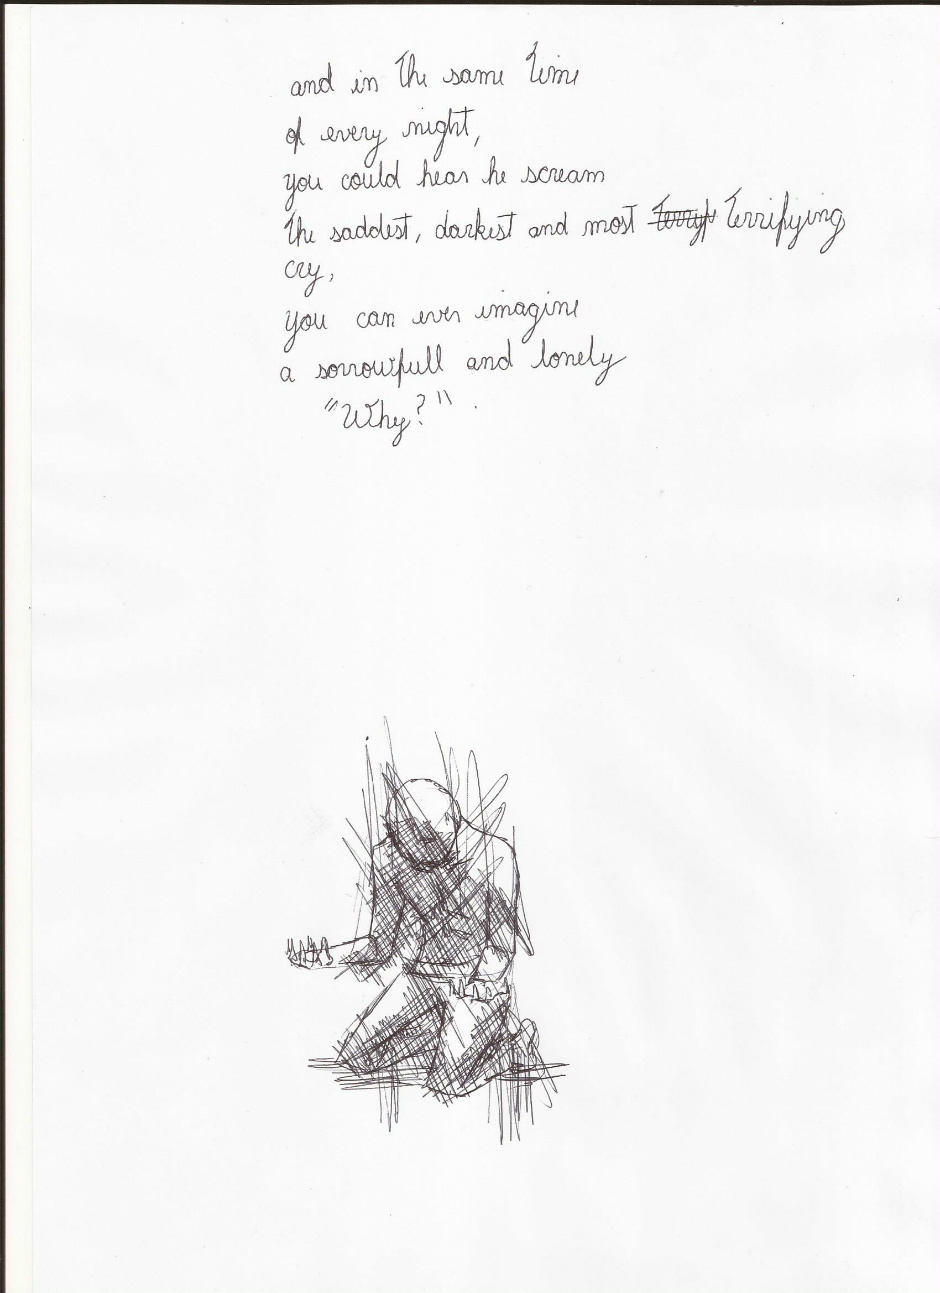 and in the same time
of every night,
you could hear he scream
the saddest, darkest and most terrifying
cry,
you can ever imagine
a sorrowfull and lonely
"Why?".